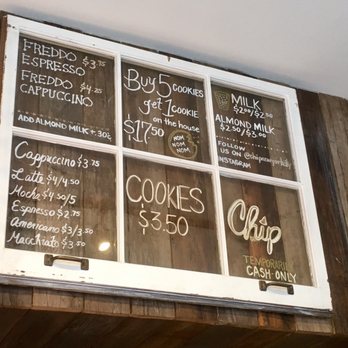 FREDDO $3.75
ESPRESSO
FREDDO $4.25
CAPPUCCINO
ADD ALMOND MILK + 30¢
Buy 5 COOKIES
get 1 COOKIE
on the house
$17.50
NOM
NOM
NOM
MILK
$2.00/$2.50
ALMOND MILK
$2.50/$3.00
FOLLOW
US ON
INSTAGRAM
Cappuccino $3.75
Latte $4/4.50
Mocha $4.50/5
Espresso $2.75
Americano $3/3.50
Macchiato $3.50
COOKIES
$3.50
Chip
TEMPORARILY
CASH ONLY